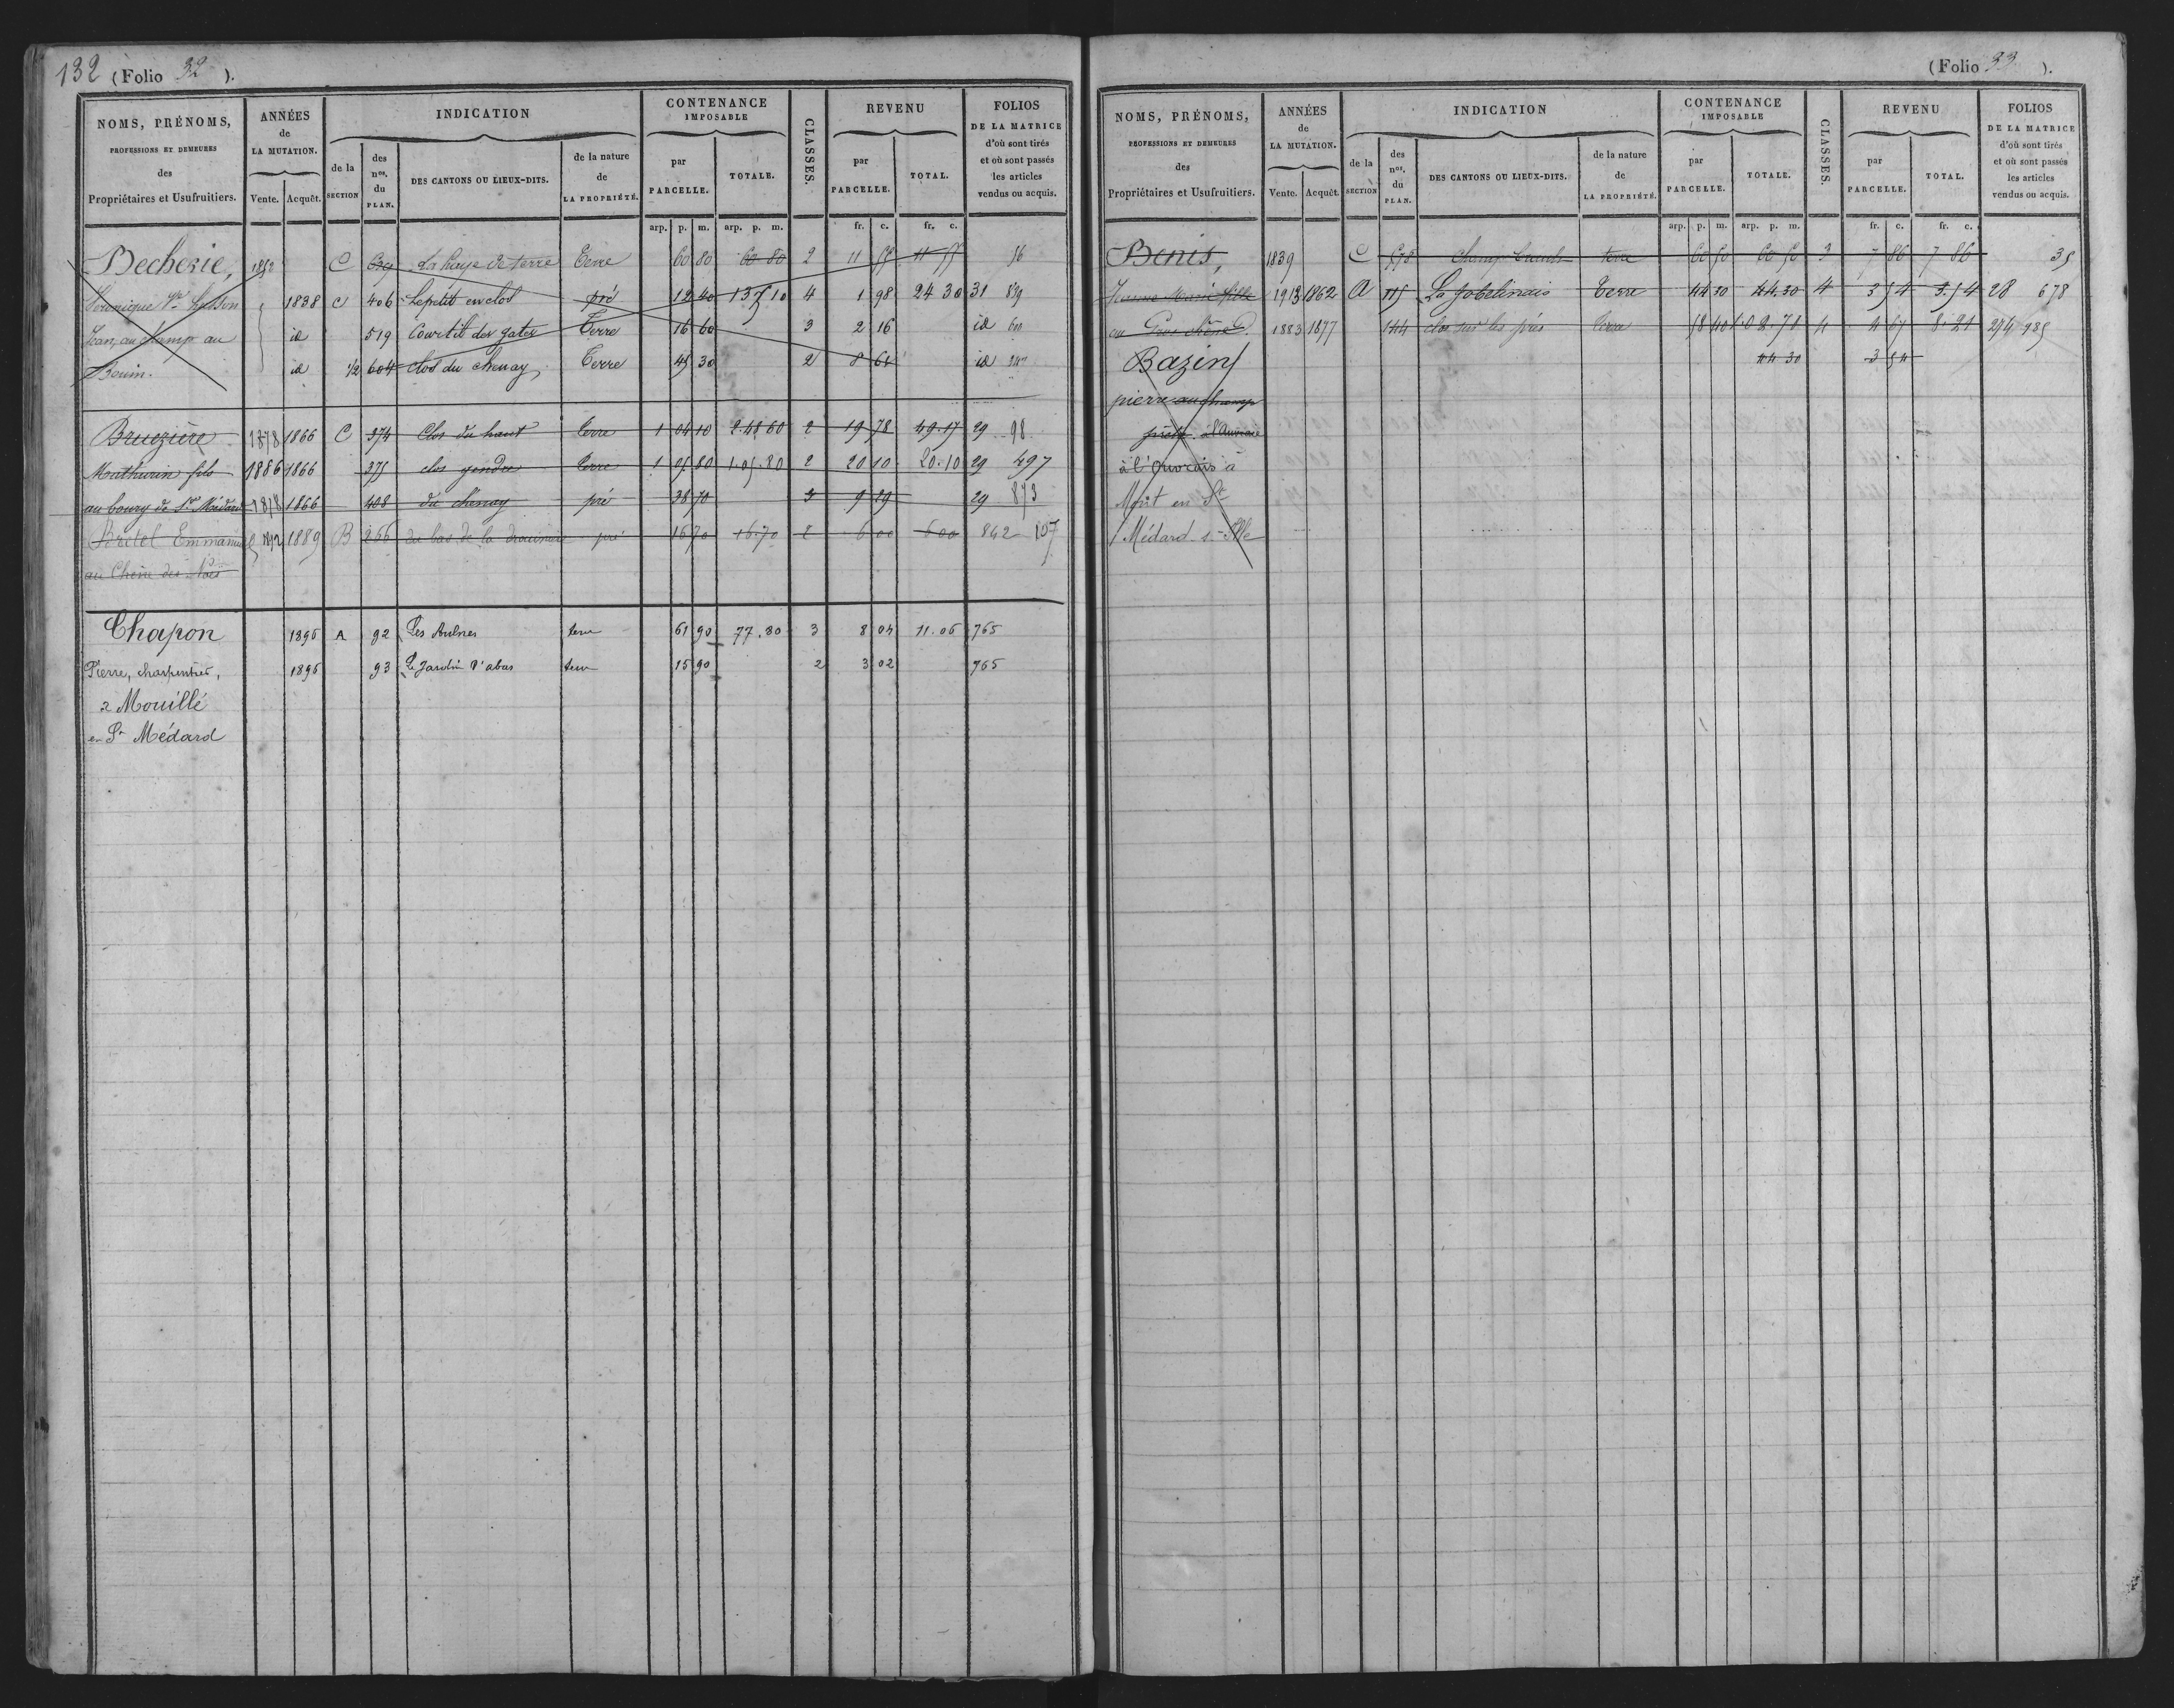 132 (Folio 32 ).
NOMS, PRÉNOMS,
PROFESSIONS ET DEMEURES
des
Propriétaires et Usufruitiers.
ANNÉES
de
LA MUTATION.
Vente. Acquêt.
INDICATION
de la
SECTION
des
nos.
du
PLAN.
DES CANTONS OU LIEUX-DITS.
de la nature
de
LA PROPRIÉTÉ.
CONTENANCE
IMPOSABLE
par
PARCELLE.
TOTALE.
CLASSES.
REVENU
par
PARCELLE.
TOTAL.
FOLIOS
DE LA MATRICE
d'où sont tirés
et où sont passés
les articles
vendus ou acquis.
arp. p. m. arp. p. m. fr. c. fr. c.
Becherie, 1852 C La haye de terre Terre 60 80 60 80 2 11 55 11 55 56
Véronique Ve 1838 C 406 Le petit enclos pré 12 40 1 35 10 4 1 98 24 30 31
Jean, au champ au id 519 Courtil des gates Terre 16 60 3 2 16 id
Bouin. id 1/2 604 clos du chenay Terre 45 30 2 8 61 id
Bruezière 1878 1866 C 374 Clos du haut Terre 1 04 10 2.48 60 2 19 78 49.17 29 98
Mathurin fils 1886 1866 375 clos gendre Terre 1 05 80 1.05.80 2 20 10 20.10 29 497
au bourg de St Médard 1878 1866 408 du chénay pré 38 70 3 9 29 29 873
Bretel Emmanuel 1892 1889 B 266 du bas de la pré 16 70 16.70 2 6 00 6 00 842 157
au Chêne des Noës
Chapon 1896 A 92 Les Aulnes terre 61 90 77.80 3 8 04 11.06 765
Pierre, charpentier, 1896 93 Le Jardin d'abas terre 15 90 2 3 02 765
à Mouillé
en St Médard
(Folio 33 ).
NOMS, PRÉNOMS,
PROFESSIONS ET DEMEURES
des
Propriétaires et Usufruitiers.
ANNÉES
de
LA MUTATION.
Vente. Acquêt.
INDICATION
de la
SECTION
des
nos.
du
PLAN.
DES CANTONS OU LIEUX-DITS.
de la nature
de
LA PROPRIÉTÉ.
CONTENANCE
IMPOSABLE
par
PARCELLE.
TOTALE.
CLASSES.
REVENU
par
PARCELLE.
TOTAL.
FOLIOS
DE LA MATRICE
d'où sont tirés
et où sont passés
les articles
vendus ou acquis.
arp. p. m. arp. p. m. fr. c. fr. c.
Benis, 1839 C 578 Champ terre 60 50 60 50 3 7 86 7 86 35
Jeanne Marie fille 1913 1862 A 115 La Jobelinais Terre 44 30 44.30 4 3 54 3.54 28 678
au Gros chêne 1883 1877 144 clos sur les prés Terre 58 40 1.02.70 4 4 67 8.21 294 985
Bazin 44 30 3 54
pierre au champ
à l'Auvrais
à l'Ouvrais à
Mont en St
Médard s-Ille